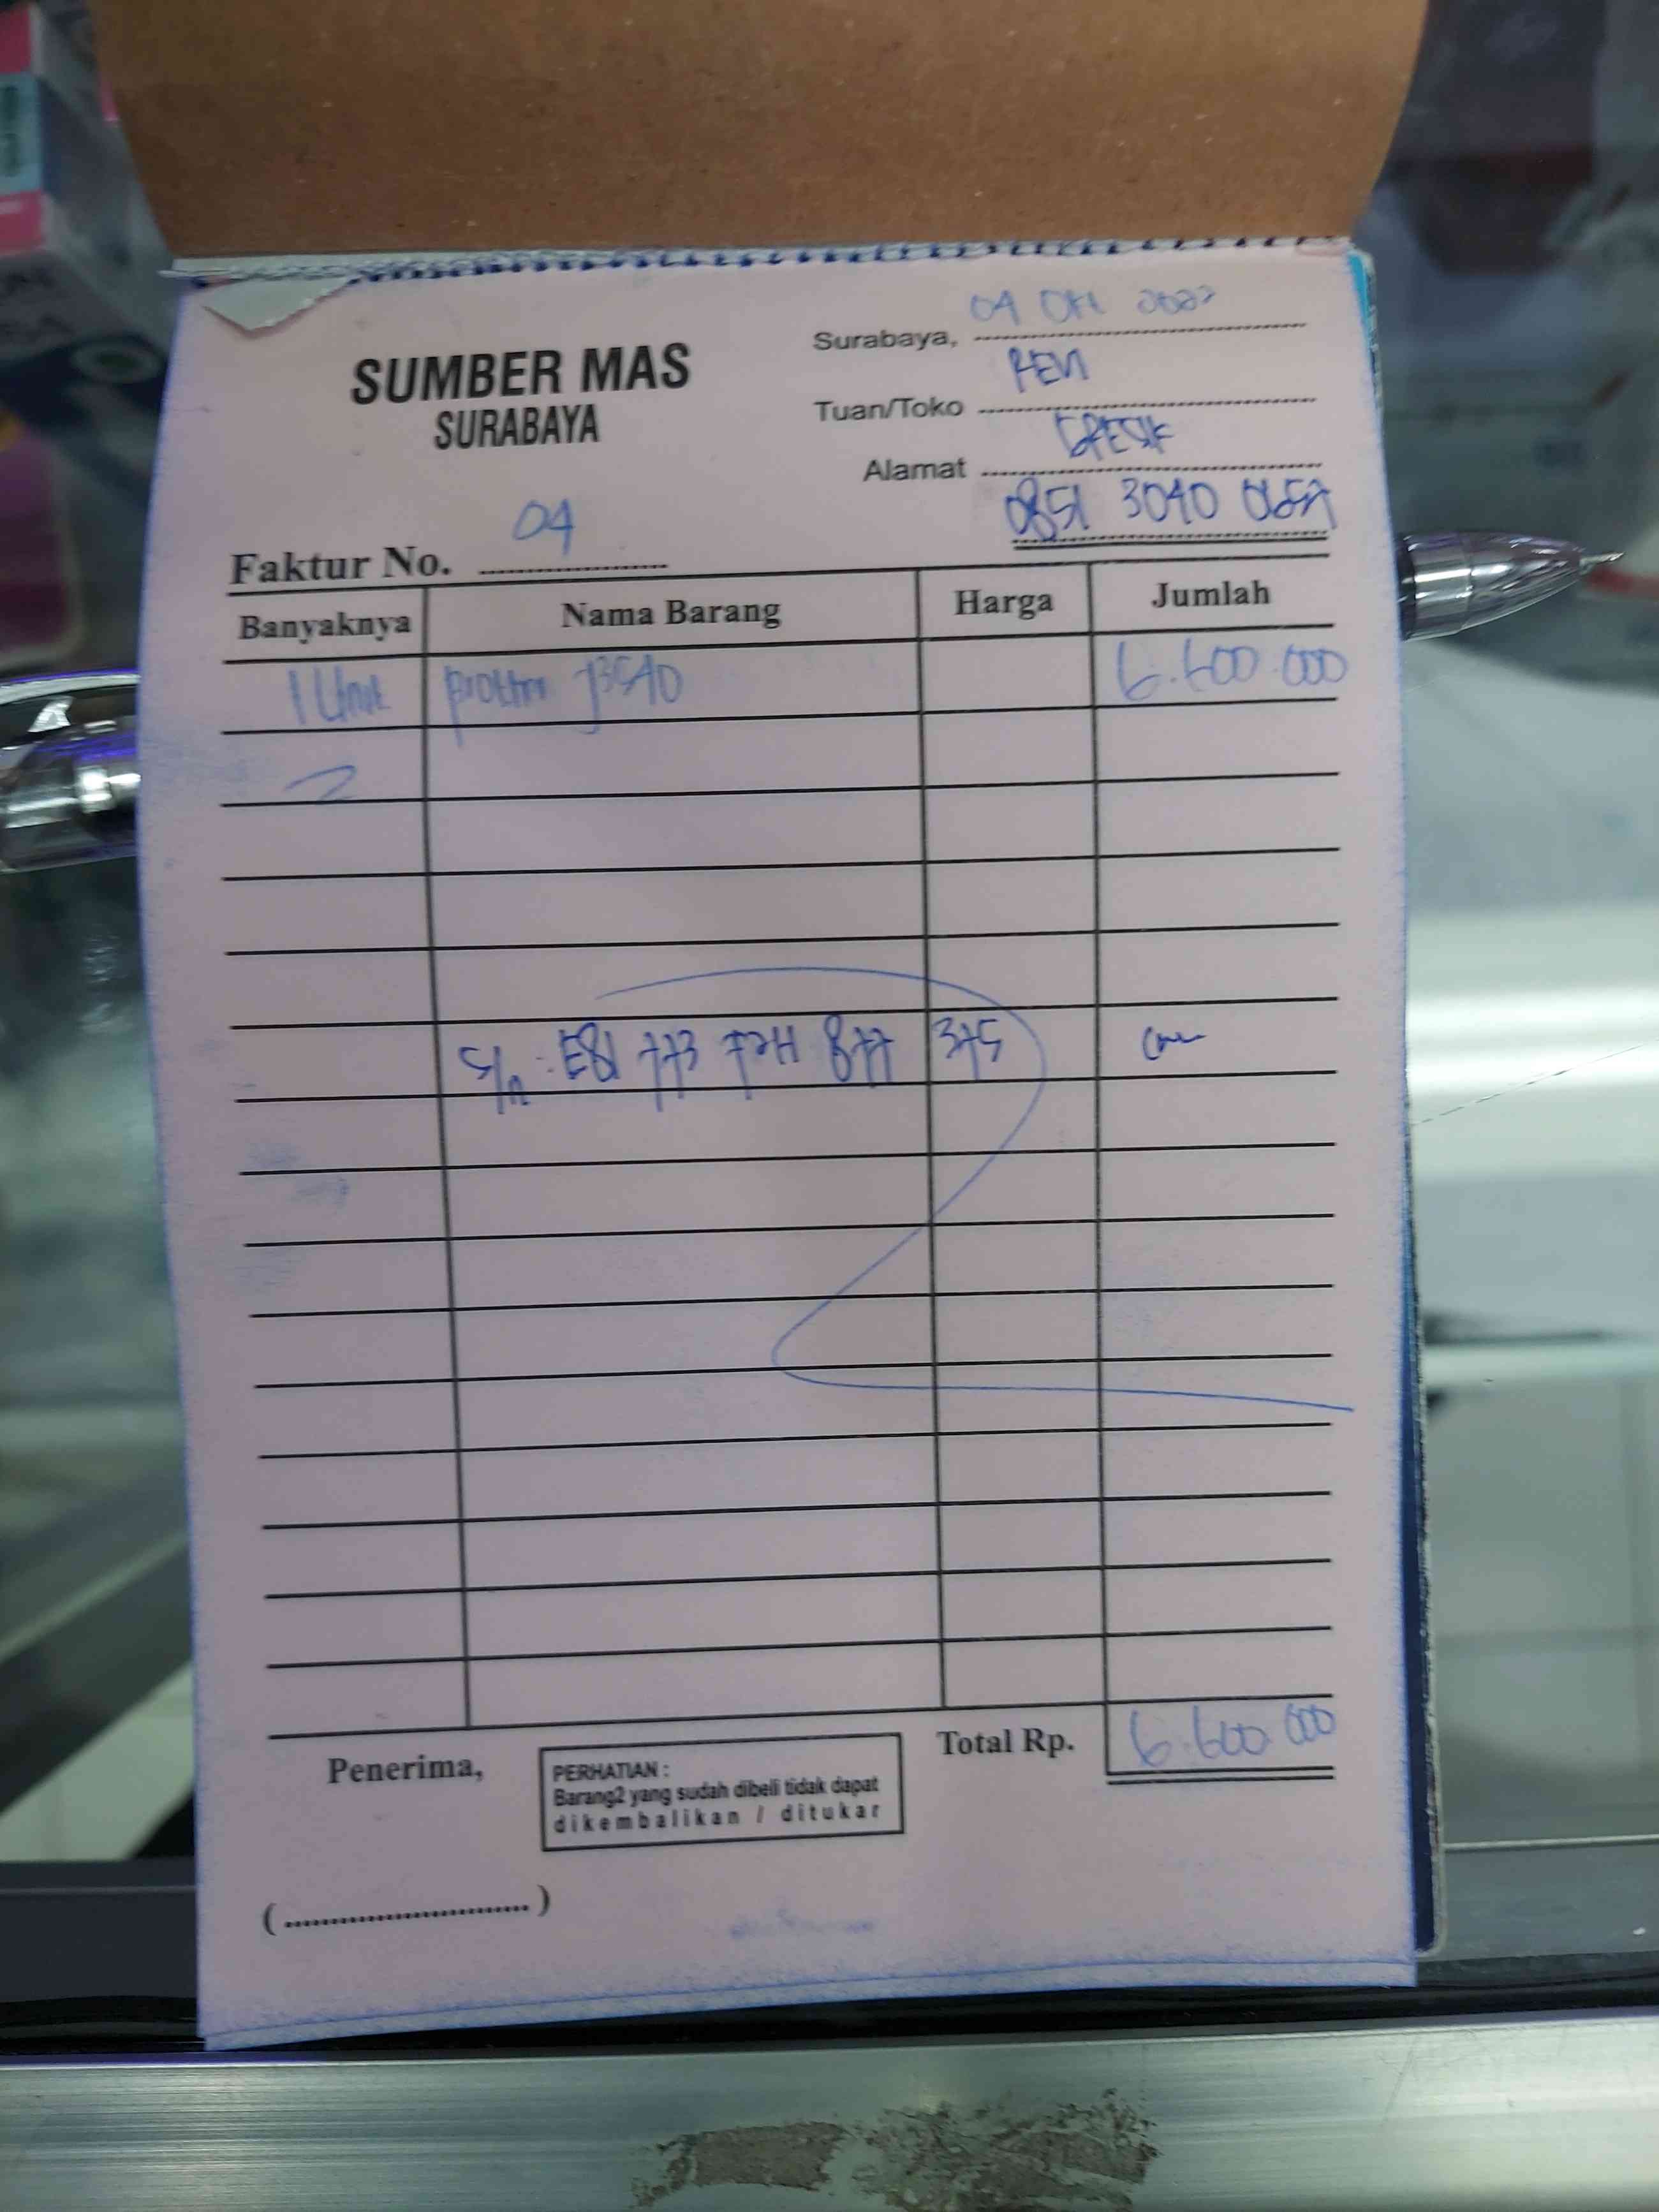 SUMBER MAS
SURABAYA
Surabaya, 04 Okt
Tuan/Toko
Alamat GRESIK
0851 3040
Faktur No. 04
Banyaknya Nama Barang Harga Jumlah
1 Unit J3540 6.600.000
S/N : 375
Total Rp. 6.600.000
Penerima,
PERHATIAN :
Barang2 yang sudah dibeli tidak dapat
dikembalikan / ditukar
(..............................)